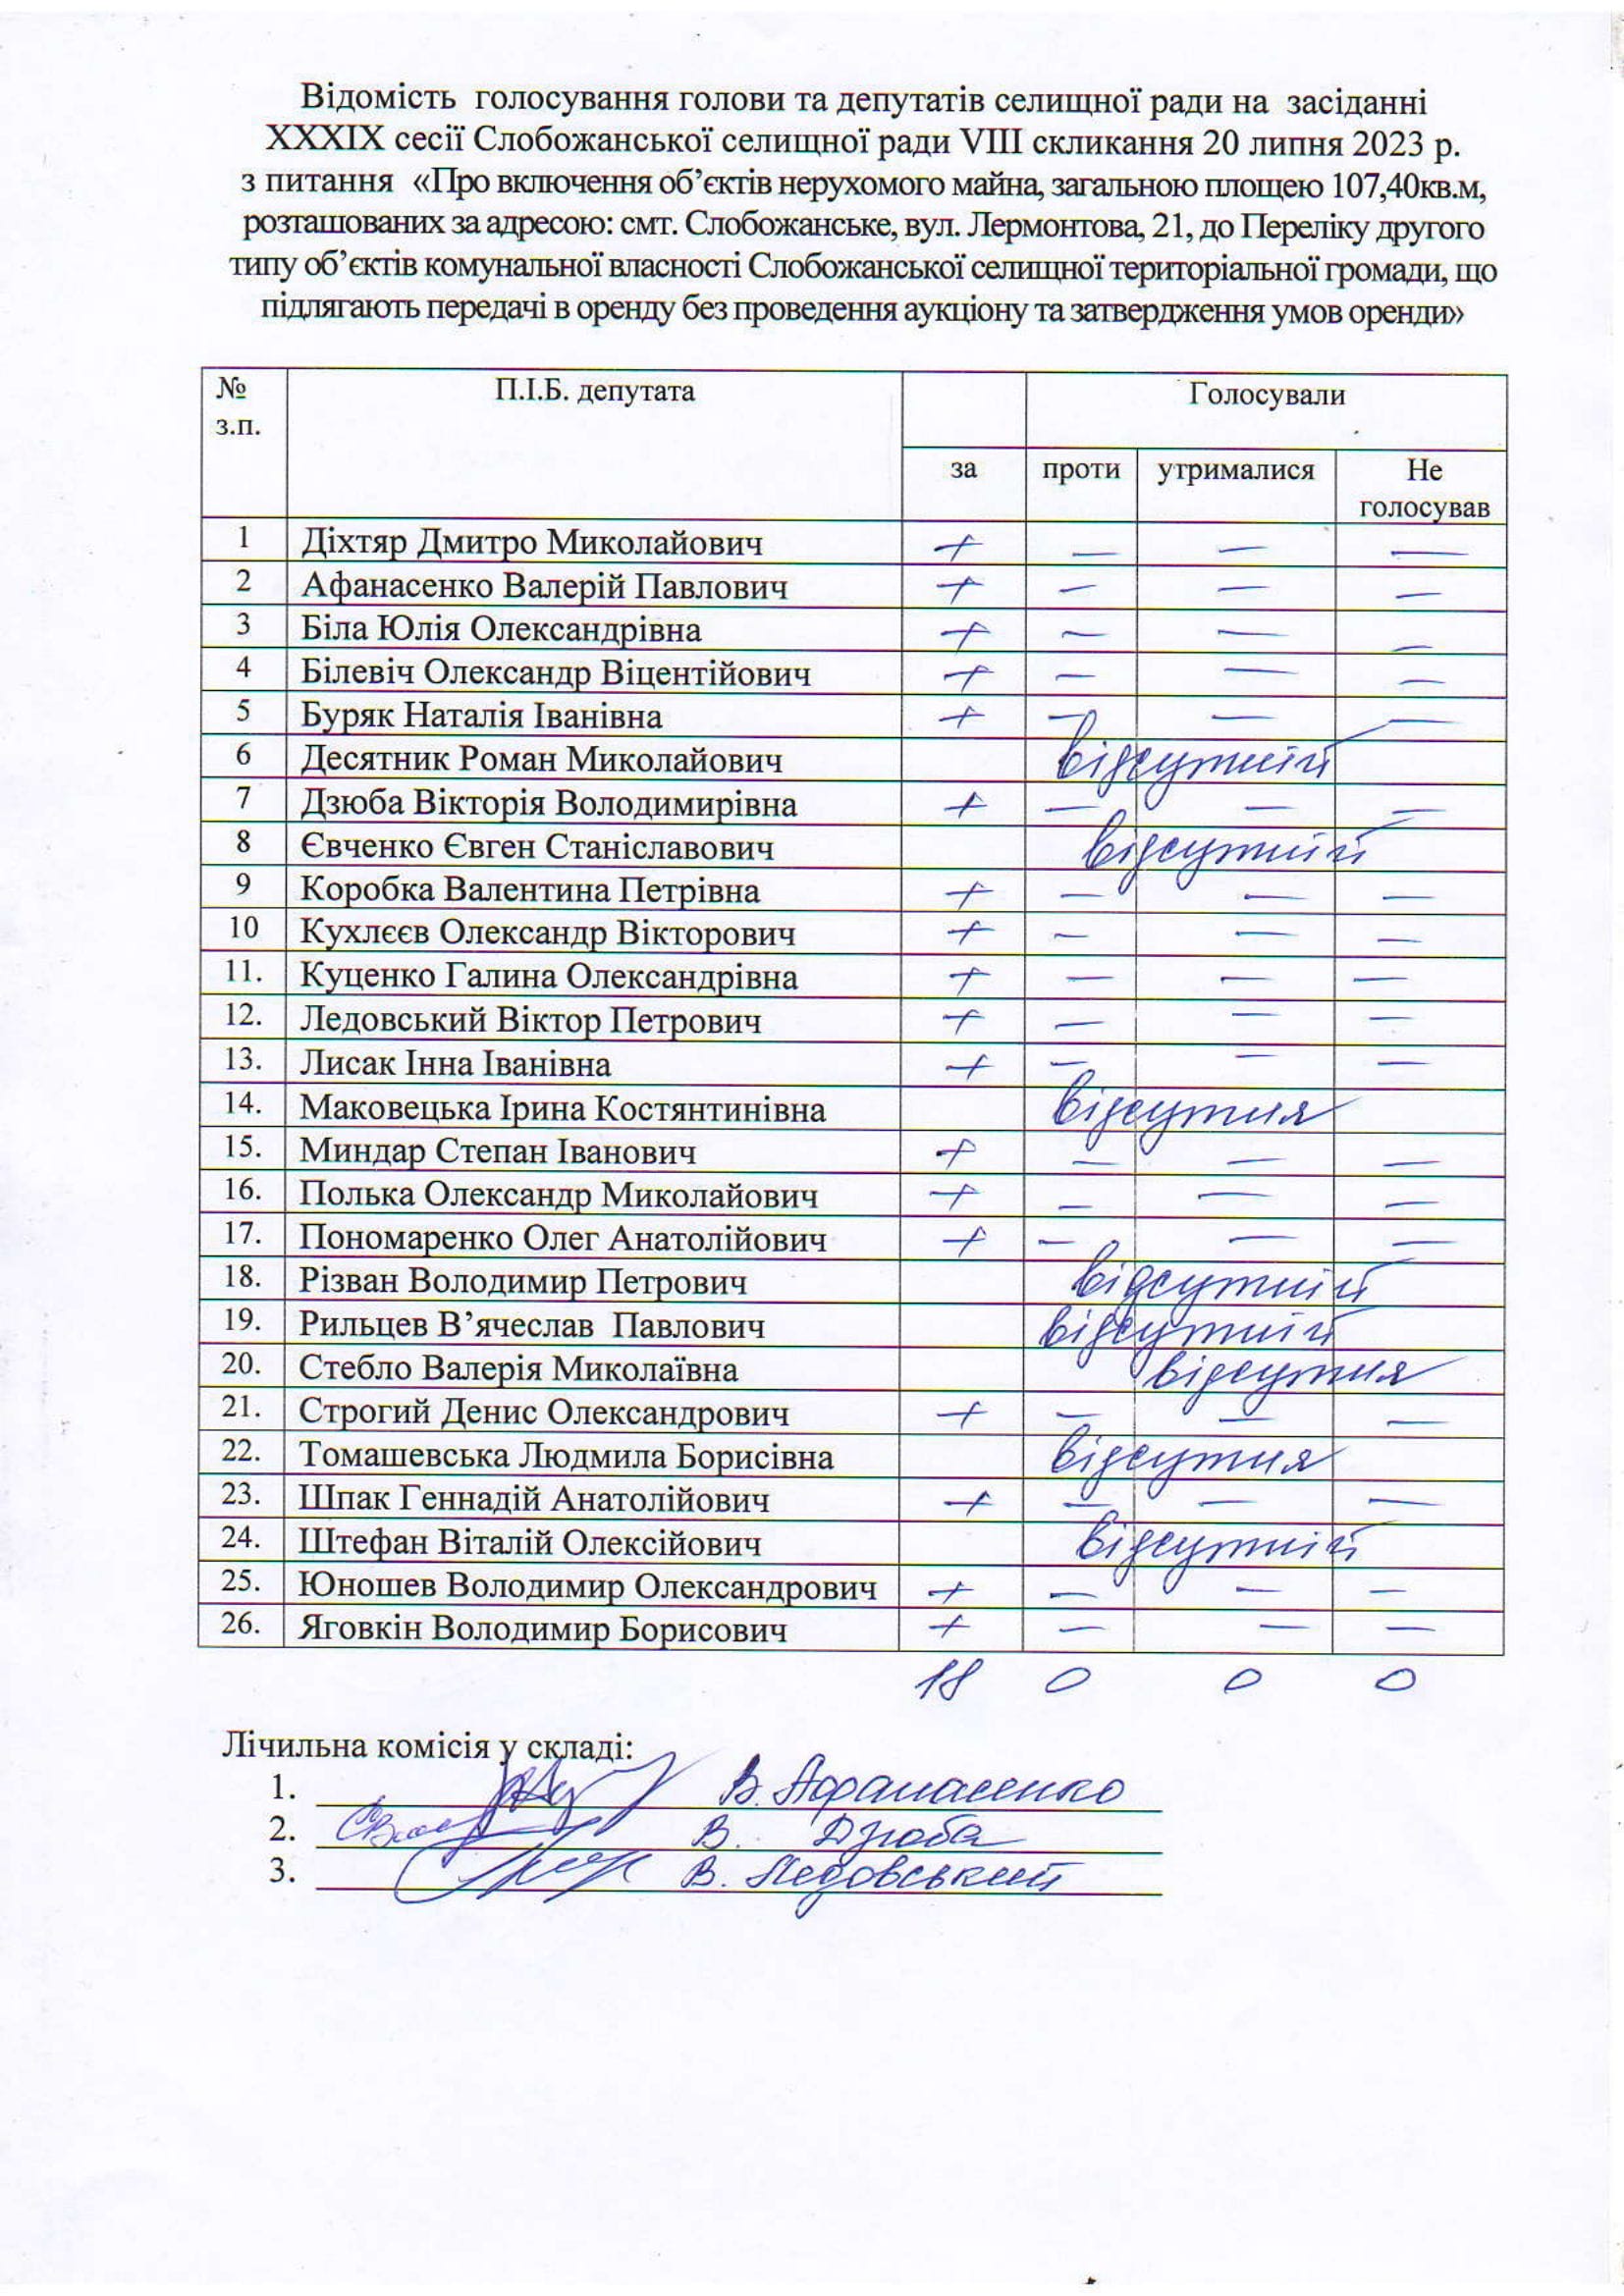 Відомість голосування голови та депутатів селищної ради на засіданні
XXXIX сесії Слобожанської селищної ради VIII скликання 20 липня 2023 р.
з питання «Про включення об’єктів нерухомого майна, загальною площею 107,40кв.м,
розташованих за адресою: смт. Слобожанське, вул. Лермонтова, 21, до Переліку другого
типу об’єктів комунальної власності Слобожанської селищної територіальної громади, що
підлягають передачі в оренду без проведення аукціону та затвердження умов оренди»
№ з.п. П.І.Б. депутата Голосували
за проти утрималися Не голосував
1 Діхтяр Дмитро Миколайович + — — —
2 Афанасенко Валерій Павлович + — — —
3 Біла Юлія Олександрівна + — — —
4 Білевіч Олександр Віцентійович + — — —
5 Буряк Наталія Іванівна + — — —
6 Десятник Роман Миколайович відсутній
7 Дзюба Вікторія Володимирівна + — — —
8 Євченко Євген Станіславович відсутній
9 Коробка Валентина Петрівна + — — —
10 Кухлєєв Олександр Вікторович + — — —
11. Куценко Галина Олександрівна + — — —
12. Ледовський Віктор Петрович + — — —
13. Лисак Інна Іванівна + — — —
14. Маковецька Ірина Костянтинівна відсутня
15. Миндар Степан Іванович + — — —
16. Полька Олександр Миколайович + — — —
17. Пономаренко Олег Анатолійович + — — —
18. Різван Володимир Петрович відсутній
19. Рильцев В’ячеслав Павлович відсутній
20. Стебло Валерія Миколаївна відсутня
21. Строгий Денис Олександрович + — — —
22. Томашевська Людмила Борисівна відсутня
23. Шпак Геннадій Анатолійович + — — —
24. Штефан Віталій Олексійович відсутній
25. Юношев Володимир Олександрович + — — —
26. Яговкін Володимир Борисович + — — —
18 0 0 0
Лічильна комісія у складі:
1. В. Афанасенко
2. В. Дзюба
3. В. Ледовський